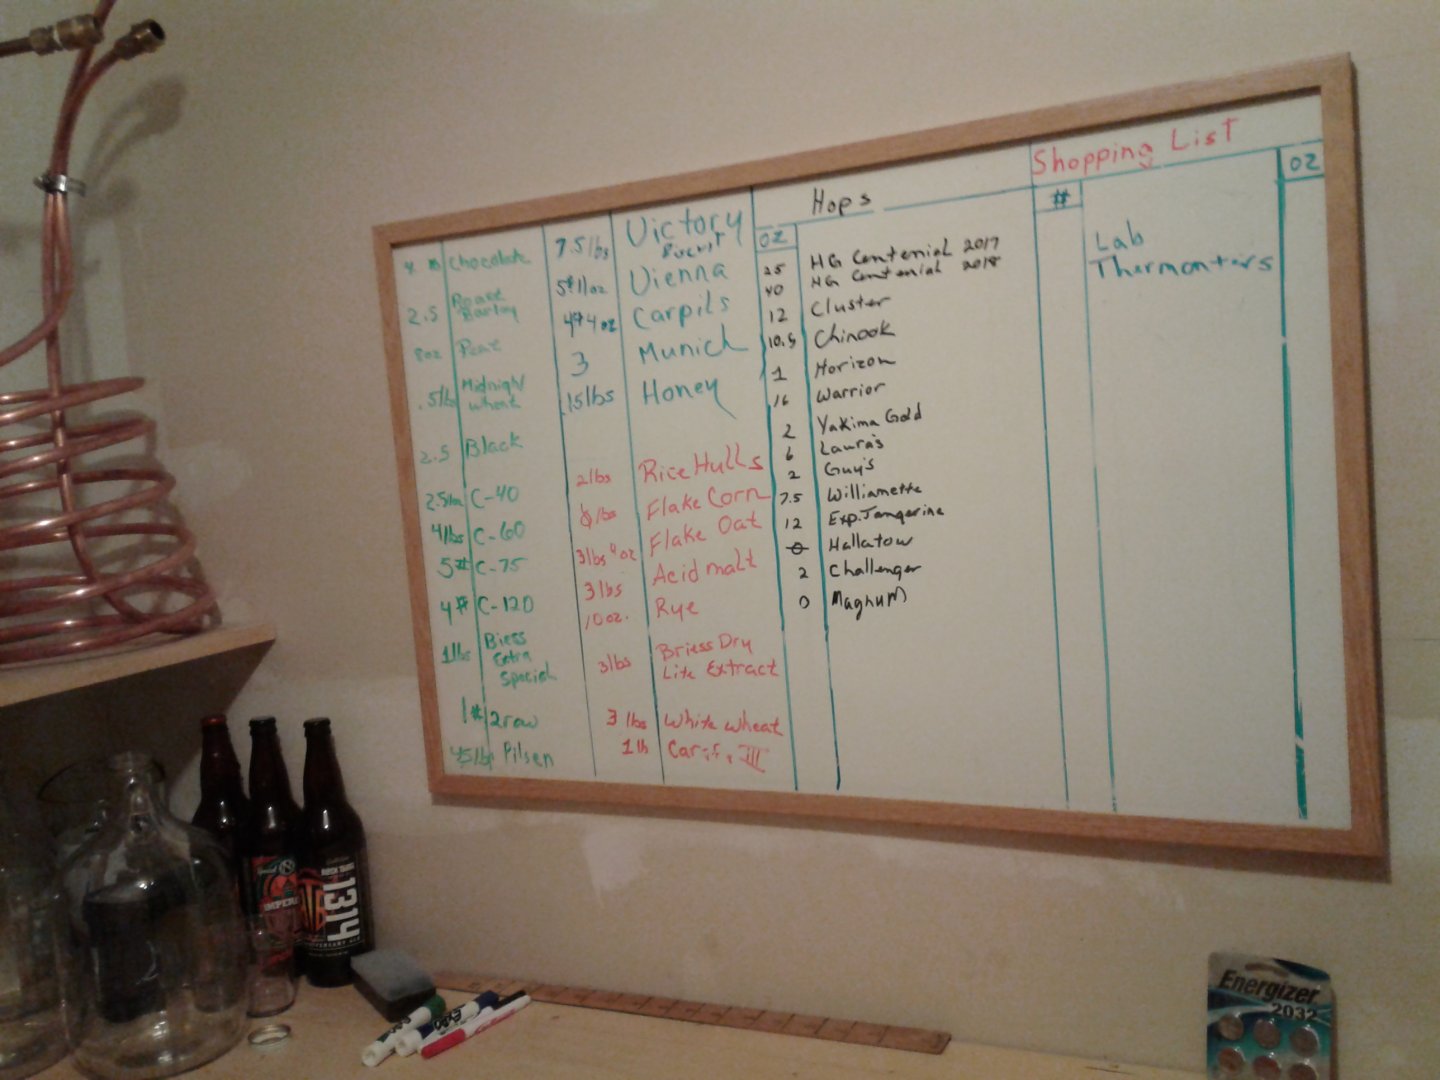 Shopping List
Hops
#
OZ
OZ
Chocolate
2.5 Roast
Barley
8oz Peat
.5lbs Midnight
wheat
2.5 Black
2.5lbs C-40
4lbs C-60
5# C-75
4# C-120
1lbs Biess
Extra
Special
1# 2row
45lbs Pilsen
7.5lbs Victory
Biscuit
5# 11oz Vienna
4# 4oz Carpils
3 Munich
.15lbs Honey
2lbs Rice Hulls
lbs Flake Corn
3lbs 4oz Flake Oat
3lbs Acid malt
10oz. Rye
3lbs Briess Dry
Lite Extract
3 lbs White Wheat
1lb III
25 HG Centenial 2017
40 HG Centenial 2018
12 Cluster
10.5 Chinook
1 Horizon
16 Warrior
2 Yakima Gold
6 Laura's
2 Guy's
7.5 Williamette
12 Exp. Tangerine
0 Hallatow
2 Challenger
0 Magnum
Lab
Thermomters
IMPERI
ROCK TRAIL
1314
ANNIVERSARY ALE
EXPO
Energizer
2032